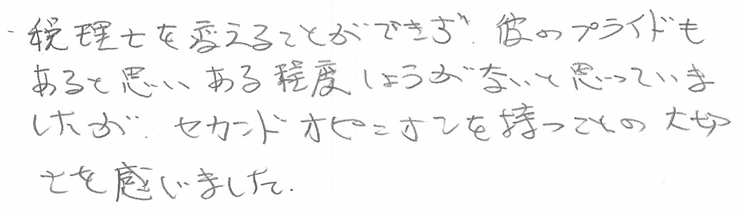 ・税理士を変えることができず、彼のプライドも
あると思いある程度しょうがないと思っていま
したが、セカンドオピニオンを持つことの大切
さを感じました。